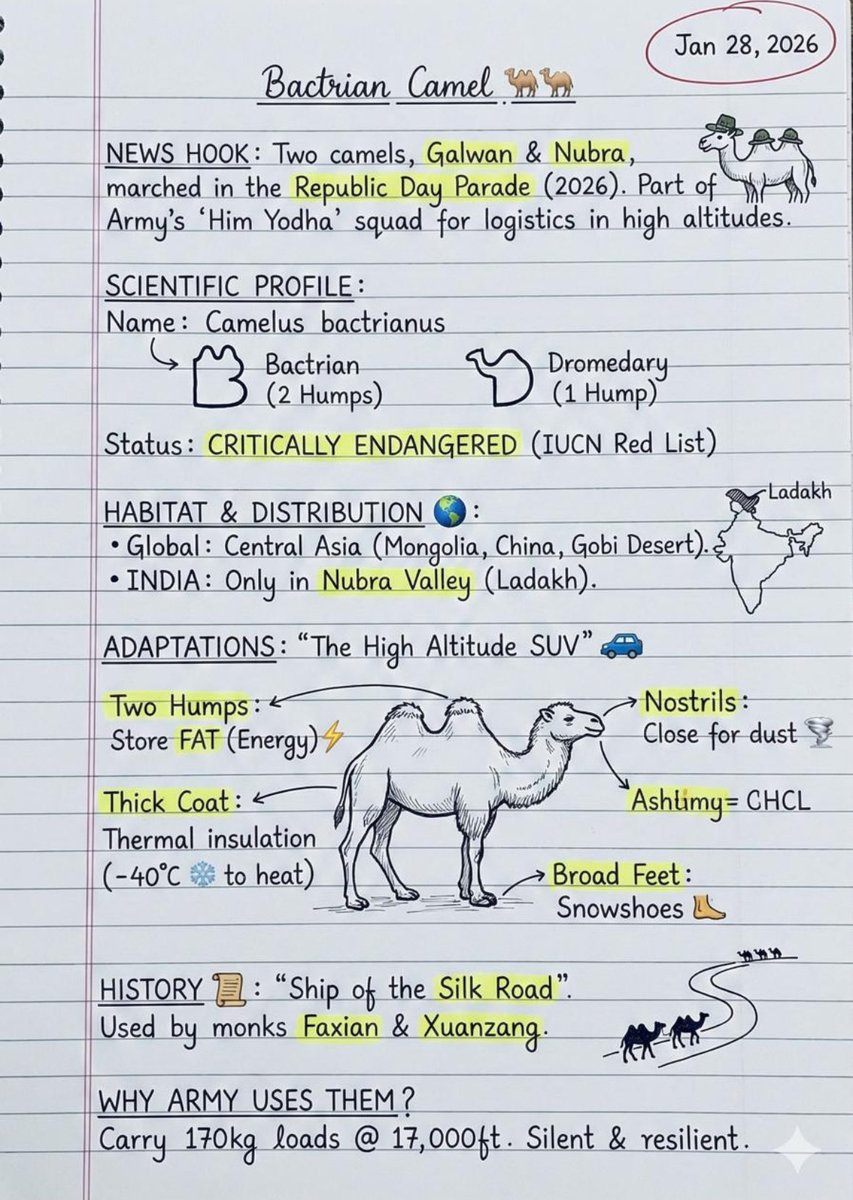 Jan 28, 2026
Bactrian Camel 🐫🐫
NEWS HOOK: Two camels, Galwan & Nubra,
marched in the Republic Day Parade (2026). Part of
Army's 'Him Yodha' squad for logistics in high altitudes.
SCIENTIFIC PROFILE:
Name: Camelus bactrianus
Bactrian
(2 Humps)
Dromedary
(1 Hump)
Status: CRITICALLY ENDANGERED (IUCN Red List)
Ladakh
HABITAT & DISTRIBUTION 🌎:
• Global: Central Asia (Mongolia, China, Gobi Desert).
• INDIA: Only in Nubra Valley (Ladakh).
ADAPTATIONS: "The High Altitude SUV" 🚙
Two Humps:
Store FAT (Energy)⚡
Nostrils:
Close for dust 🌪️
Thick Coat:
Thermal insulation
(-40°C ❄️ to heat)
= CHCL
Broad Feet:
Snowshoes 🦶
HISTORY 📜: "Ship of the Silk Road".
Used by monks Faxian & Xuanzang.
WHY ARMY USES THEM?
Carry 170kg loads @ 17,000ft. Silent & resilient.